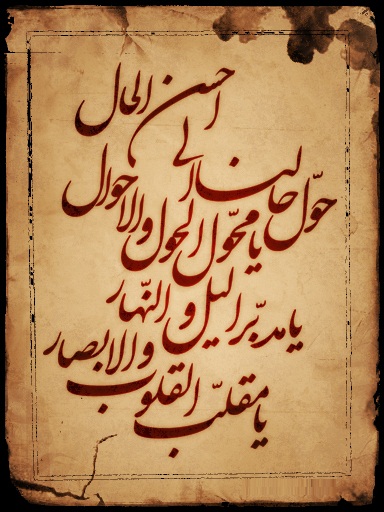 یا مقلّب القلوب و الابصار
یا مدبّر اللیل و النّهار
یا محوّل الحول و الاحوال
حوّل حالنا الی
احسن الحال